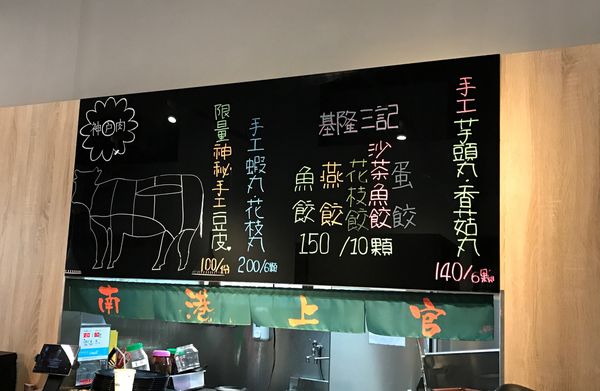 手工芋頭丸·香菇丸
140/6顆
基隆三記
蛋餃
沙茶魚餃
花枝餃
燕餃
魚餃
150/10顆
手工蝦丸·花枝丸
200/6顆
限量神秘手工豆皮
100/份
神戶肉
南港上官